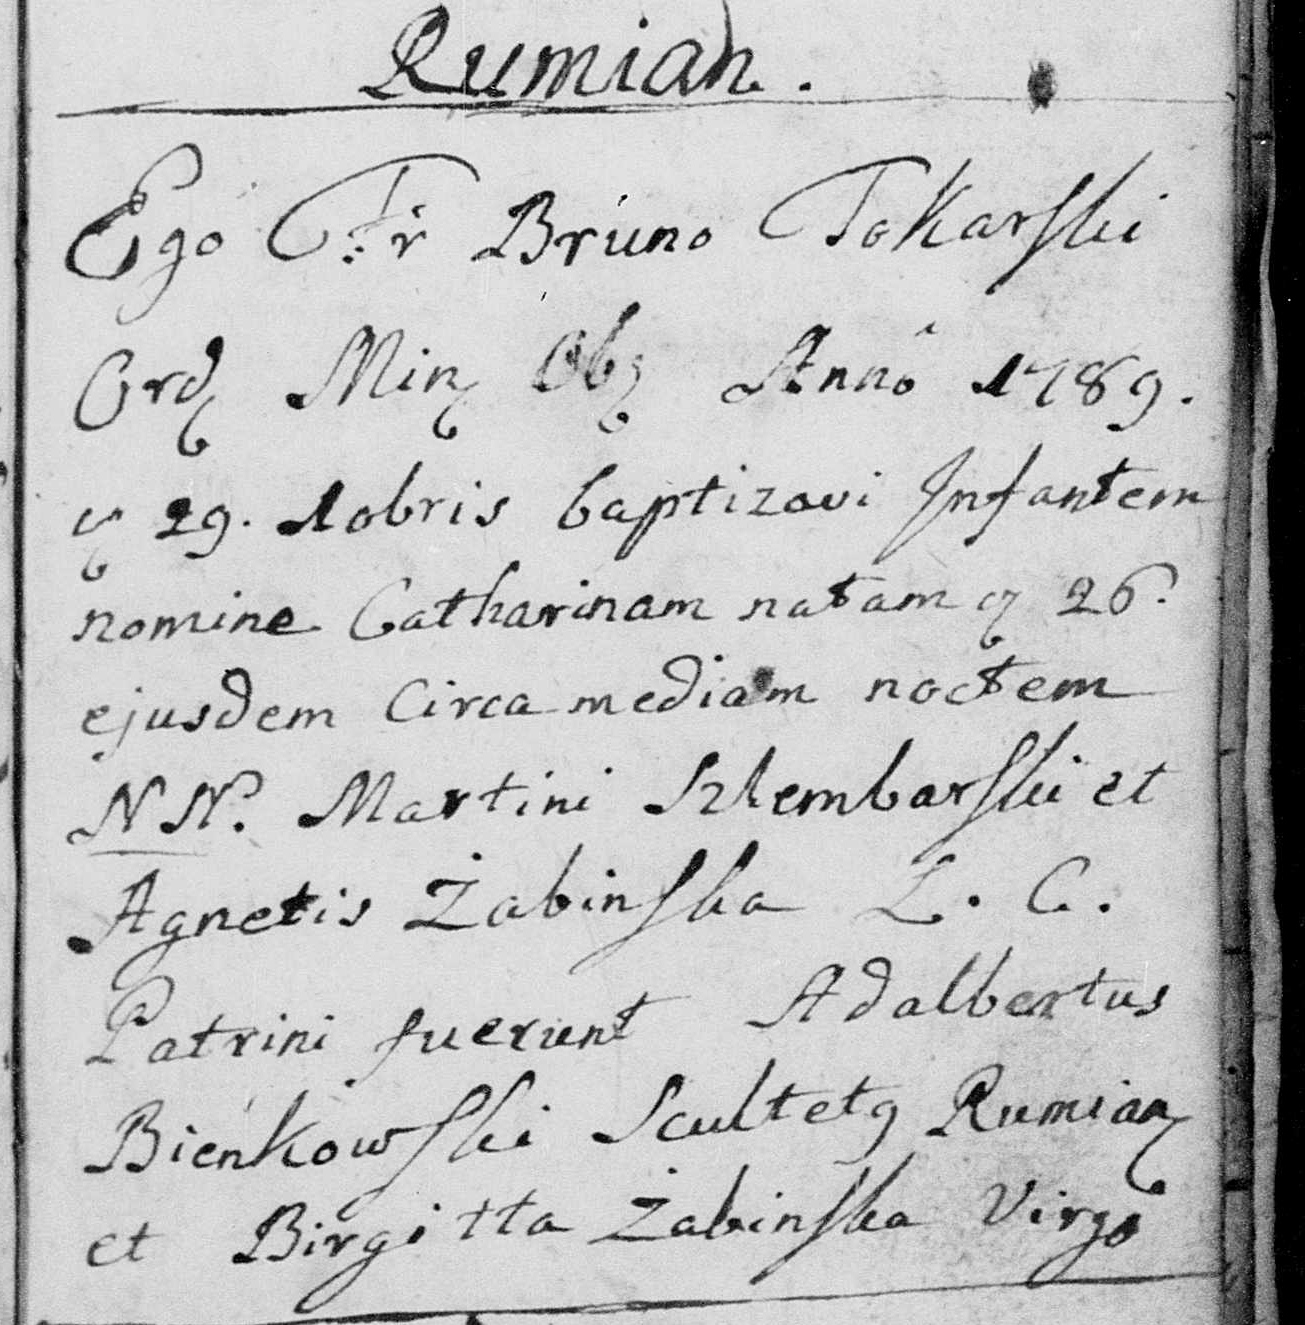 Rumian.
Ego Fr Bruno Tokarski
Ord Min Obs Anno 1789.
29. 10bris baptizavi Infantem
nomine Catharinam natam 26.
ejusdem Circa mediam noctem
NN. Martini Szlembarski et
Agnetis Żabinska L. C.
Patrini fuerunt Adalbertus
Bieńkowski Scultetg Rumian
et Birgitta Żabinska Virgo